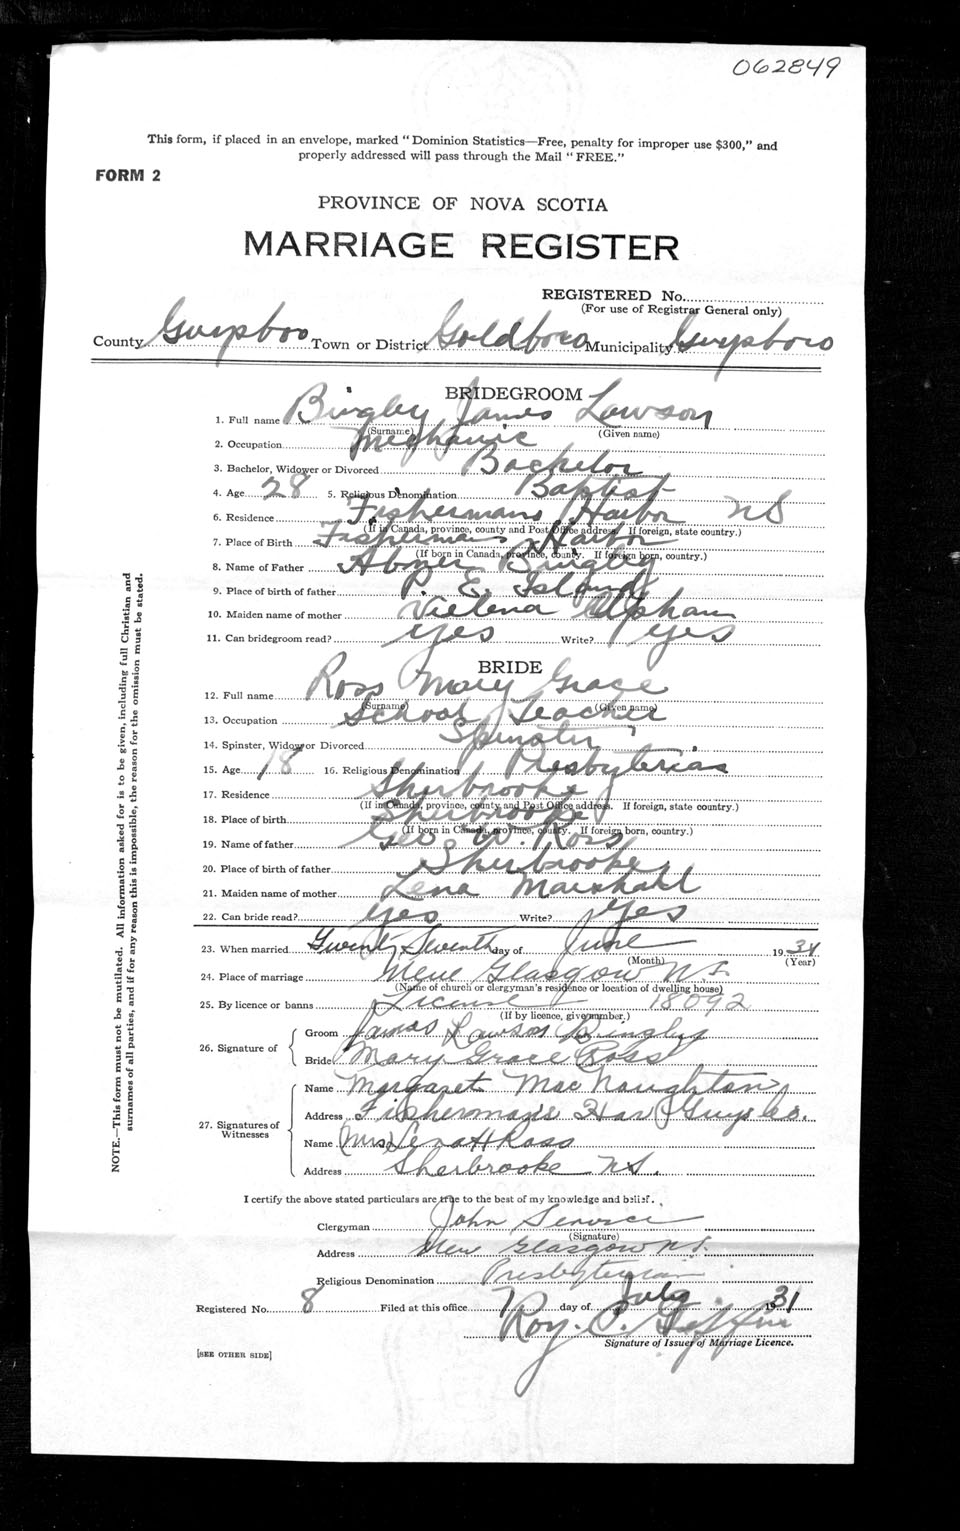 062849
This form, if placed in an envelope, marked "Dominion Statistics—Free, penalty for improper use $300," and
properly addressed will pass through the Mail "FREE."
FORM 2
PROVINCE OF NOVA SCOTIA
MARRIAGE REGISTER
REGISTERED No.
(For use of Registrar General only)
County Guysboro Town or District Goldboro Municipality Guysboro
BRIDEGROOM
1. Full name Bingley James Lawson
(Surname) (Given name)
2. Occupation Mechanic
3. Bachelor, Widower or Divorced Bachelor
4. Age 28 5. Religious Denomination Baptist
6. Residence Fishermans Harbor NS
(If in Canada, province, county and Post Office address. If foreign, state country.)
7. Place of Birth Fishermans Harbor
(If born in Canada, province, county. If foreign born, country.)
8. Name of Father Abner Bingley
9. Place of birth of father P. E. Island
10. Maiden name of mother
11. Can bridegroom read? yes Write? yes
BRIDE
12. Full name Ross Mary Grace
(Surname) (Given name)
13. Occupation School Teacher
14. Spinster, Widow or Divorced Spinster
15. Age 18 16. Religious Denomination Presbyterian
17. Residence Sherbrooke
(If in Canada, province, county and Post Office address. If foreign, state country.)
18. Place of birth Sherbrooke
(If born in Canada, province, county. If foreign born, country.)
19. Name of father Geo W. Ross
20. Place of birth of father Sherbrooke
21. Maiden name of mother Lena Marshall
22. Can bride read? yes Write? yes
23. When married Twenty Seventh day of June 1931
(Month) (Year)
24. Place of marriage New Glasgow N.S.
(Name of church or clergyman's residence or location of dwelling house)
25. By licence or banns License 18092
(If by licence, give number.)
26. Signature of
Groom James Lawson Bingley
Bride Mary Grace Ross
27. Signatures of Witnesses
Name Margaret MacNaughton
Address Fisherman's Har Guys Co.
Name (Mrs) Lena H Ross
Address Sherbrooke N.S.
I certify the above stated particulars are true to the best of my knowledge and belief.
Clergyman John
(Signature)
Address New Glasgow N.S.
Religious Denomination Presbyterian
Registered No. 8 Filed at this office 7 day of July 1931
Roy. P.
Signature of Issuer of Marriage Licence.
[SEE OTHER SIDE]
NOTE.—This form must not be mutilated. All information asked for is to be given, including full Christian and
surnames of all parties, and if for any reason this is impossible, the reason for the omission must be stated.